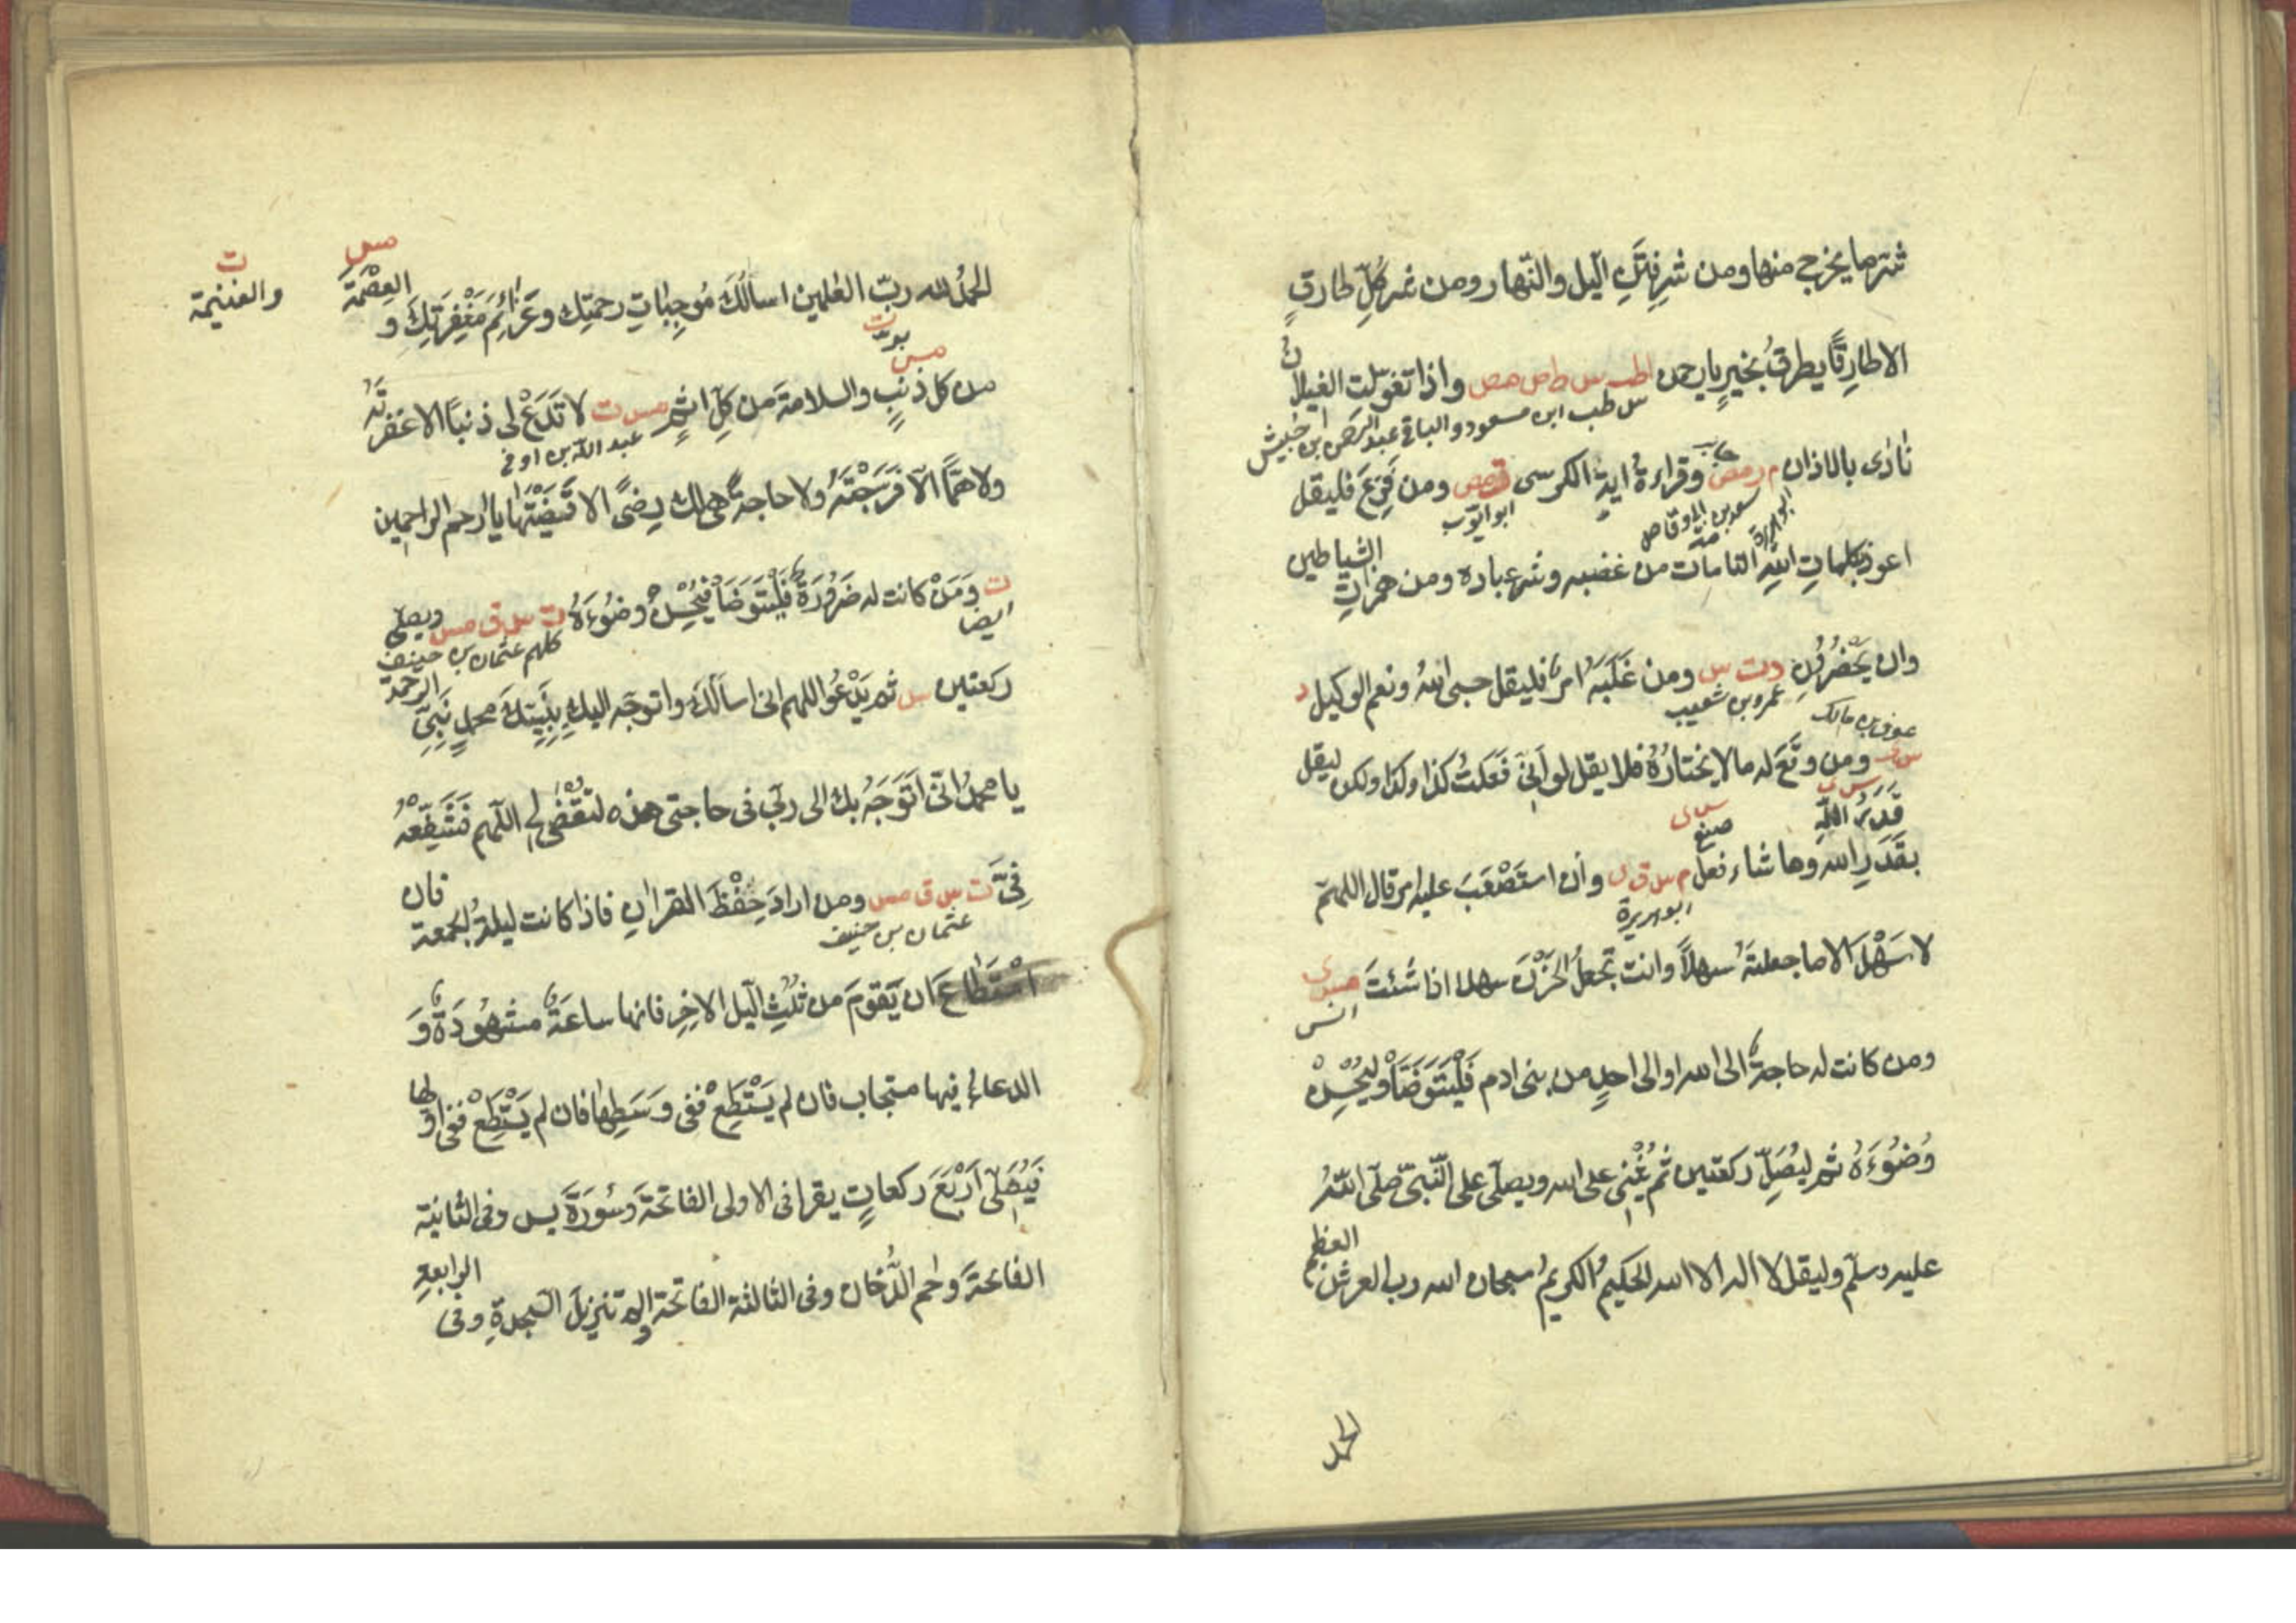 شر ما يخرج منها ومن شر فتن اليل والنهار ومن شر كل طارق
الا طارقًا يطرقُ بخيرٍ يا رحمن اطب س ط مص مص واذا تغوّلت الغيلانُ
س طب ابن مسعود والباقى عبد الرحمن ابن خنبش
نادى بالاذان م ر مص وقراءةُ ايةِ الكرسى ت مص ومن فَزِعَ فليقل
سعد بن ابى وقاص ابو ايوب
ابو هريرة
اعوذ بكلماتِ اللهِ التامات من غضبه وشر عباده ومن همزاتِ الشياطين
وان يَحْضُرُونِ د ت س ومن غَلَبَهُ امرٌ فليقل حسبى اللهُ ونعم الوكيل د
عمرو بن شعيب
عوف بن مالك
س ومن وقَعَ له ما لا يختارُهُ فلا يقل لو اَنِّى فَعَلتُ كذا وكذا ولكن ليقل
س ى
قَدَّرَ اللّٰه
س ى
صنع
بقَدَرِ الله وما شاء فعل م س ق ى وان استَصْعَبَ عليه امر قال اللهمّ
ابو هريرة
لا سَهْلَ الا ما جعلتَهُ سهلًا وانت تجعلُ الحَزْنَ سهلا اذا شئتَ حب ى
انس
ومن كانت له حاجةٌ الى الله او الى احدٍ من بنى ادم فَلْيَتَوَضَّأْ وليُحْسِنْ
وُضُوْءَهُ ثم ليُصَلِّ ركعتين ثُم يُثْنِى على الله ويصلّى على النّبىّ صلّى اللّٰهُ
عليه وسلّم وليقل لا اله الا الله الحكيمُ الكريمُ سبحان الله رب العرش العظيم
الحمد
مس
ت
الحمدُ لله ربّ العٰلمين اسألُكَ مُوجِبٰاتِ رحمتِك وعَزٰائِمَ مَغْفِرَتِكَ و العِصْمَةَ
والغنيمة
ت
مس
من كل ذنبٍ والسلامةَ من كلِّ اثمٍ مس ت لا تَدَعْ لى ذنبًا الا غفرتَهُ
عبد الله بن اوفى
ولا همًّا الّا فَرَّجْتَهُ ولا حاجةً هى لك رِضًى الا قَضَيْتَهٰا يا ارحم الراحمين
ت وَمَنْ كانت له ضَرُوْرَةٌ فَلْيَتَوَضَّأْ فَيُحْسِنُ وضُوْءَهُ ت س ق مس ويصلّى
ايضا
كلهم عثمان بن حنيف
ركعتين س ثم يَدْعُو اللهم انى اسألُكَ واتوجّه اليك بِنَبِيِّكَ محمدٍ نَبِىِّ الرحمة
يا محمدُ انّى اَتَوَجَّهُ بك الى ربّى فى حاجتى هذه لتُقْضٰى لى اللّهم فَشَفِّعْهُ
فِىَّ ت س ق مس ومن اراد حِفْظَ القراٰنِ فاذا كانت ليلةُ الجمعة فان
عثمان بن حنيف
اسْتَطٰاعَ ان يَّقومَ من ثُلُثِ الّيل الاخِرِ فانها ساعةٌ مشهُودَةٌ وَ
الدعاءُ فيها مستجاب فان لم يَسْتَطِعْ ففى وَسَطِهٰا فان لم يَسْتَطِعْ ففى اوّلها
فَيُصَلِّى اَرْبَعَ ركعاتٍ يقرا فى الاولى الفاتحةَ وَسُورَةَ يس وفى الثانية
الفاتحةَ وحٰم الدُّخان وفى الثالثة الفاتحة والم تنزيلَ السجدةِ وفى الرابعةِ